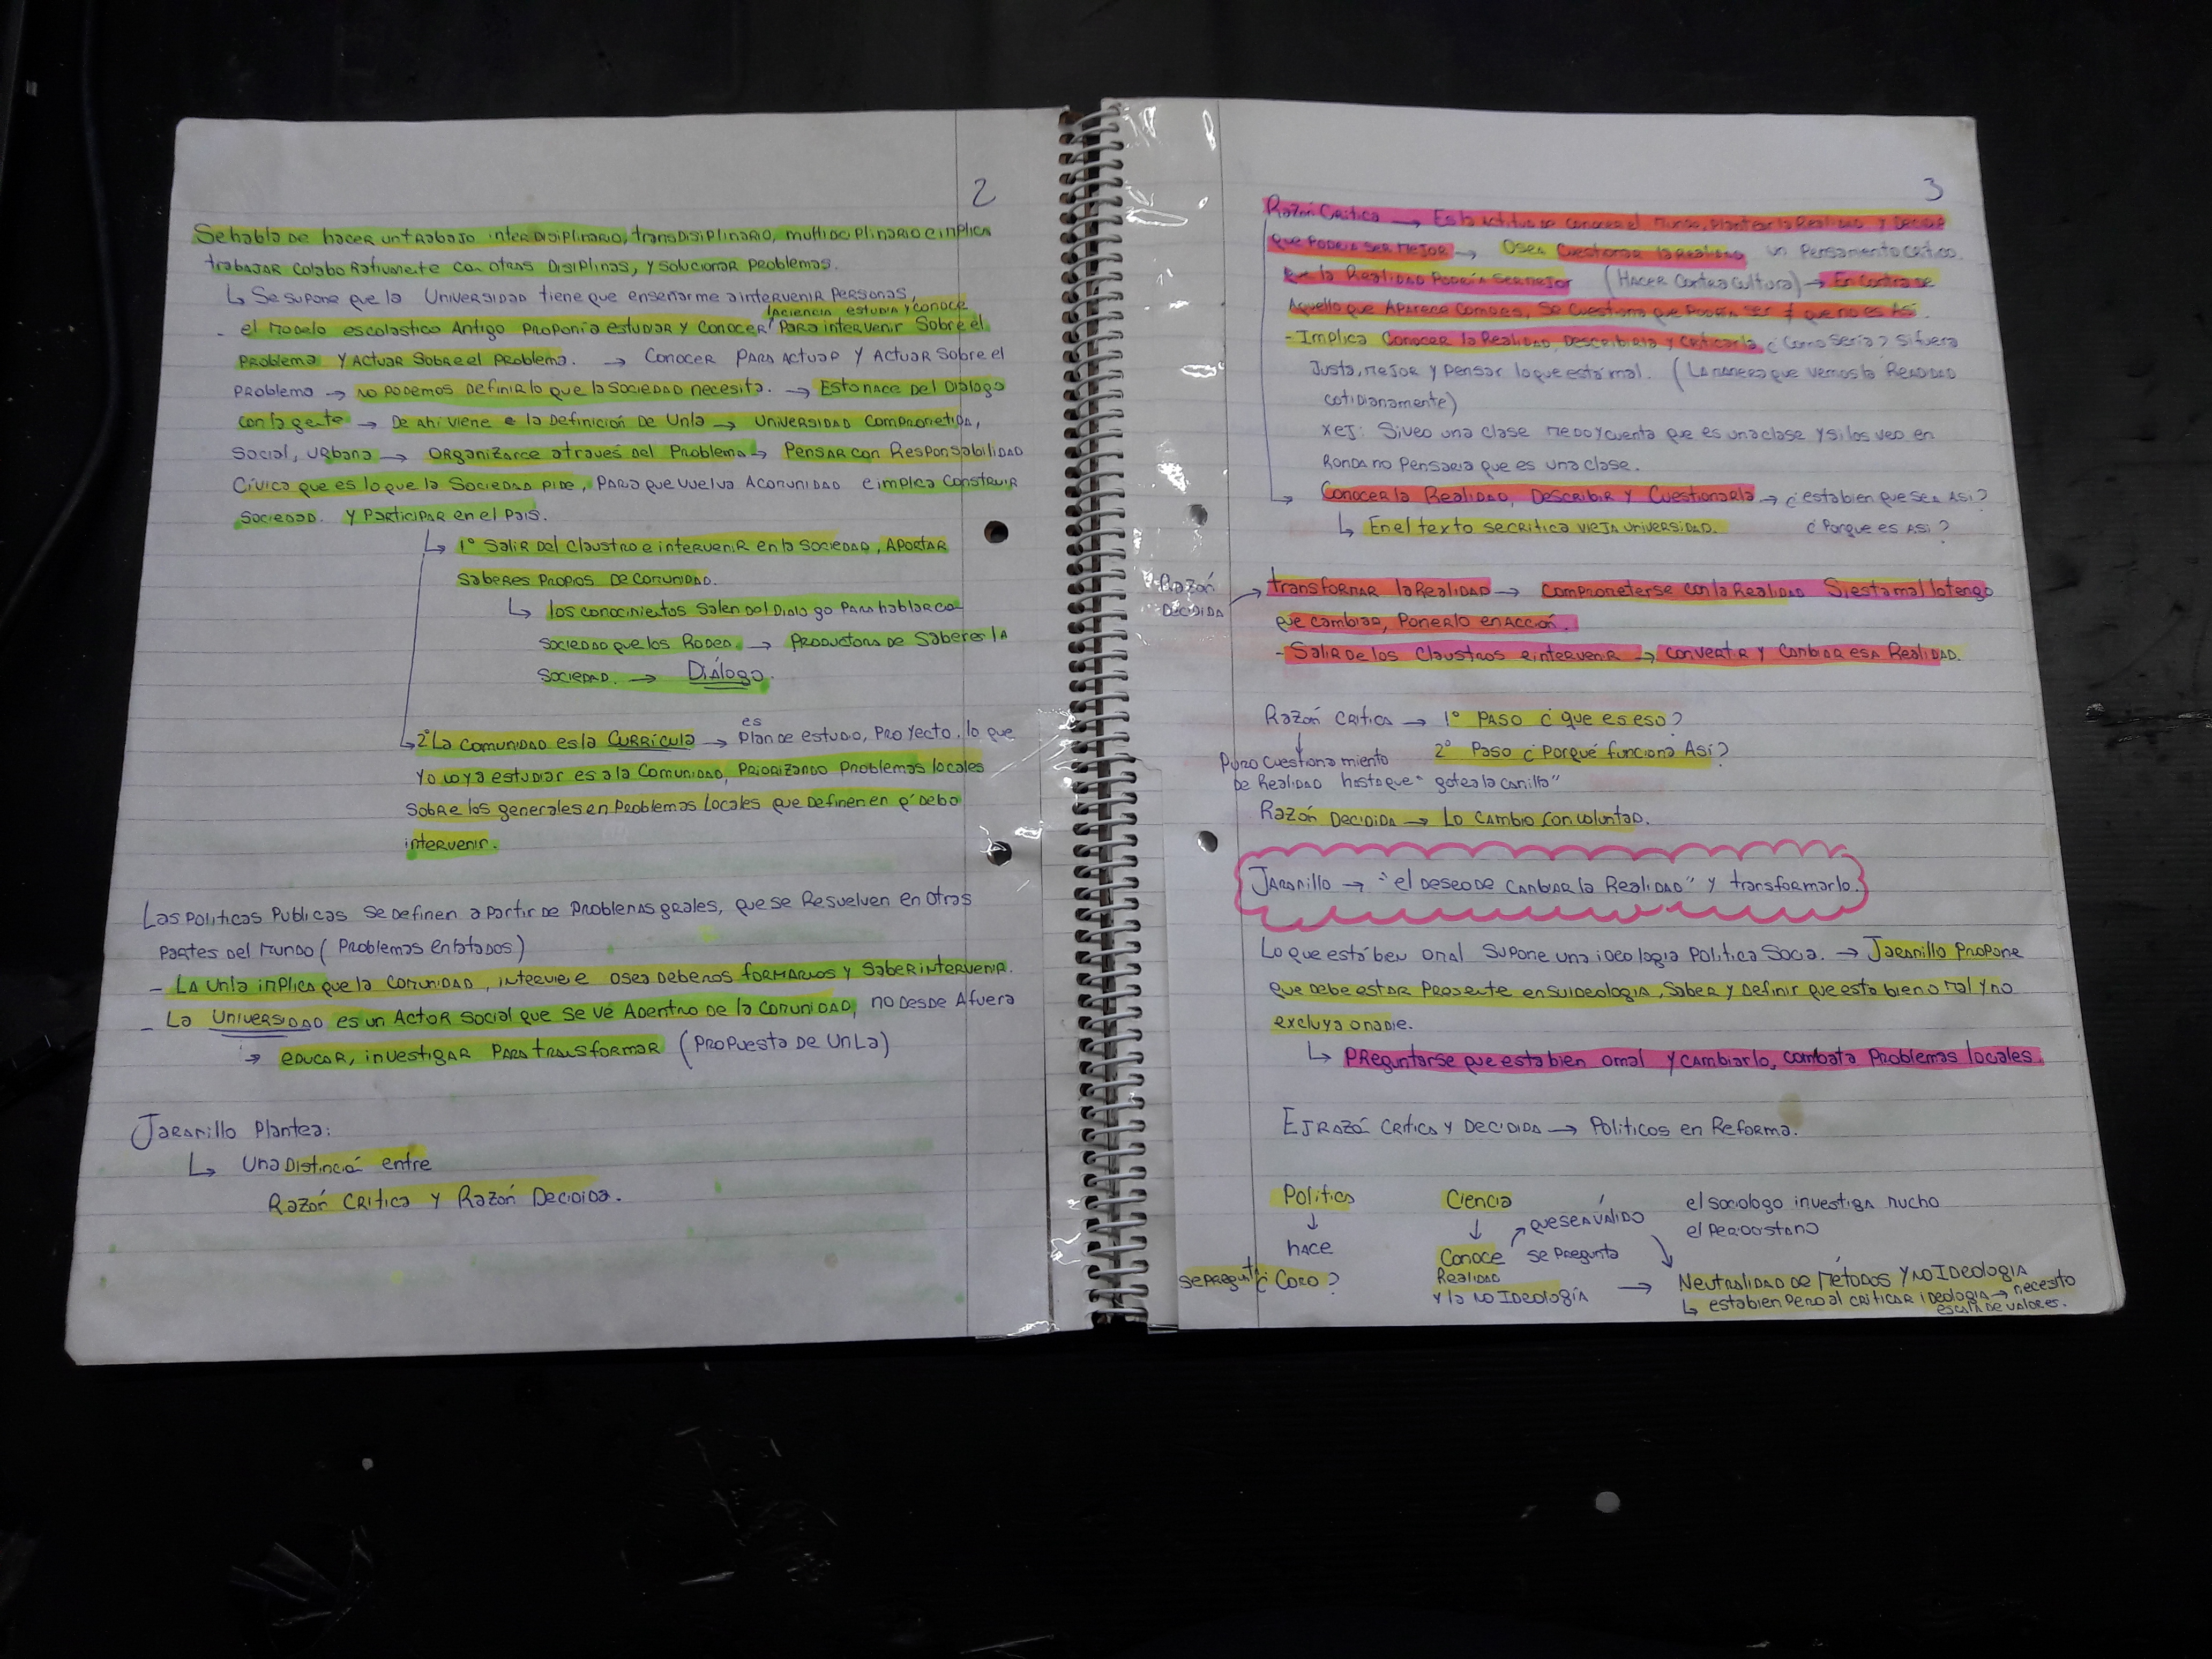 2
Se habla de hacer un trabajo interdisiplinario, transdisiplinario, multidiciplinario e inplica
trabajar colaborativamente con otras disiplinas, y solucionar problemas.
↳ Se supone que la Universidad tiene que enseñarme a intervenir personas,
la ciencia estudia y conoce
- el modelo escolastico Antigo proponia estudiar y conocer para intervenir sobre el
problema y actuar sobre el problema. → Conocer para actuar y actuar sobre el
problema → no podemos definir lo que la sociedad necesita. → Esto nace del dialogo
con la gente → De ahi viene la definición de Unla → Universidad comprometida,
social, urbana → organizarce através del problema → Pensar con Responsabilidad
Cívica que es lo que la sociedad pide, para que vuelva a comunidad e implica construir
sociedad. y participar en el país.
↳ 1º Salir del claustro e intervenir en la sociedad, aportar
saberes propios de comunidad.
↳ los conocimientos salen del dialogo para hablar con
sociedad que los rodea. → productora de saberes la
sociedad. → Diálogo.
es
↳ 2º La comunidad es la Currícula → plan de estudio, proyecto. lo que
yo voy a estudiar es a la comunidad, priorizando problemas locales
sobre los generales en problemas locales que definen en q' debo
intervenir.
Las politicas publicas se definen a partir de problemas grales, que se resuelven en otras
partes del mundo (problemas enlatados)
- La Unla inplica que la comunidad, interviene osea debemos formarnos y saber intervenir.
- La Universidad es un actor social que se vé adentro de la comunidad, no desde afuera
→ educar, investigar para transformar (propuesta de UnLa)
Jaramillo plantea:
↳ una distinción entre
Razón critica y Razón Decidida.
3
Razón Critica → Es la actitud de conocer el mundo, plantear la realidad y decidir
que podria ser mejor → Osea cuestionar la realidad un pensamiento critico.
la realidad podria ser mejor (Hacer contra cultura) → En contra de
aquello que aparece como es, se cuestiona que podria ser ≠ que no es asi.
- Implica conocer la realidad, describirla y criticarla ¿como sería? si fuera
justa, mejor y pensar lo que está mal. (La manera que vemos la realidad
cotidianamente)
xej: Si veo una clase me doy cuenta que es una clase y si los veo en
ronda no pensaria que es una clase.
→ Conocer la realidad, describir y cuestionarla → ¿esta bien que sea asi?
↳ En el texto se critica vieja universidad. ¿Porque es asi?
Razón
Decidida
→ transformar la realidad → comprometerse con la realidad si esta mal lo tengo
que cambiar, ponerlo en acción.
- Salir de los claustros e intervenir → convertir y cambiar esa realidad.
Razón critica → 1º Paso ¿que es eso?
2º Paso ¿Porqué funciona asi?
puro cuestionamiento
de realidad hasta que "gotea la canilla"
Razón Decidida → Lo cambio con voluntad.
Jaramillo → "el deseo de cambiar la realidad" y transformarlo.
Lo que está bien o mal supone una ideologia politica social. → Jaramillo propone
que debe estar presente en su ideologia, saber y definir que esta bien o mal y no
excluya a nadie.
↳ Preguntarse que esta bien o mal y cambiarlo, combata problemas locales.
Ej razón critica y decidida → Politicos en Reforma.
Politica
↓
hace
se pregunta ¿Como?
Ciencia
↓
Conoce
Realidad
y la no ideología
→ que sea válido
se pregunta
el sociologo investiga mucho
el periodista no
→ Neutralidad de métodos y no ideologia
↳ esta bien pero al criticar ideologia → necesito
escala de valores.